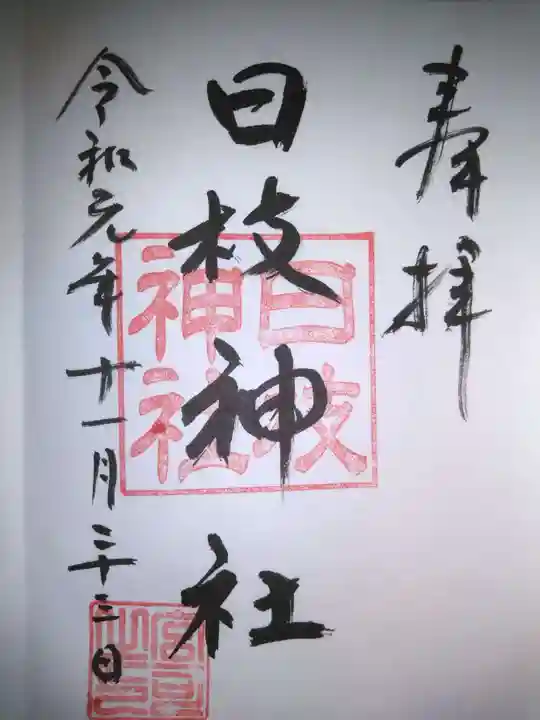 奉拝
日枝神社
日枝神社
令和元年十一月二十三日